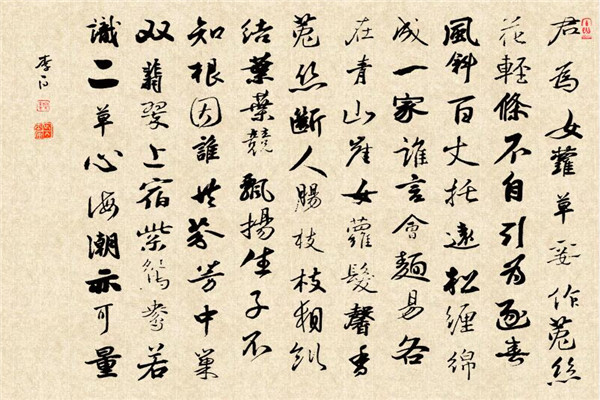 君為女蘿草妾作菟絲
花輕條不自引為逐春
風斜百丈托遠松纏綿
成一家誰言會麵易各
在青山崖女蘿髮馨香
菟絲斷人腸枝枝相糾
結葉葉競飄揚生子不
知根因誰共芬芳中巢
双翡翠上宿紫鴛鴦若
識二草心海潮亦可量
李白